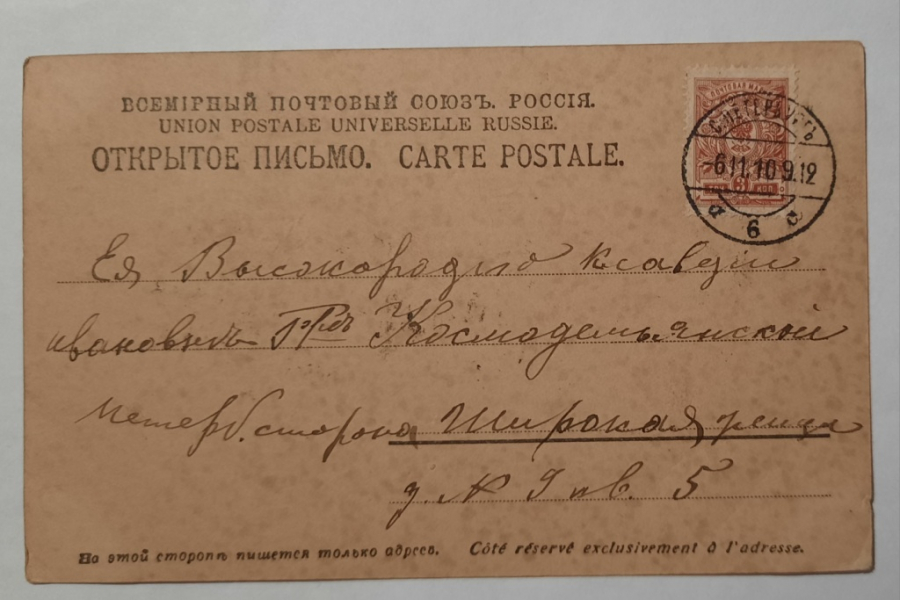 ВСЕМІРНЫЙ ПОЧТОВЫЙ СОЮЗЪ. РОССІЯ.
UNION POSTALE UNIVERSELLE RUSSIE.
ОТКРЫТОЕ ПИСЬМО. CARTE POSTALE.
ПОЧТОВАЯ МАРКА
С.ПЕТЕРБУРГЪ
-6.11.10 9.12
3 КОП
6
Ея Высокородію Клавдіи
Ивановнѣ Космодемьянской
Петерб. сторона Широкая улица
д. № 9 кв. 5
На этой сторонѣ пишется только адресъ. Côté réservé exclusivement à l'adresse.